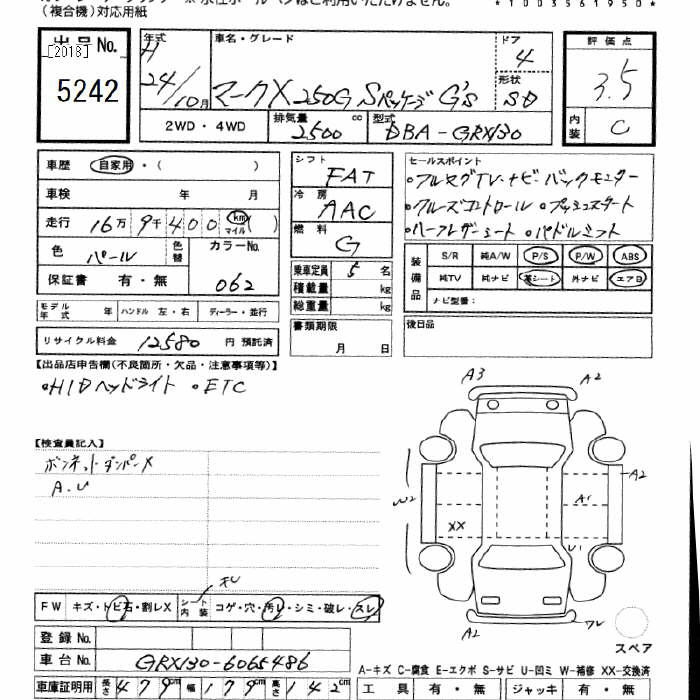 (複合機)対応用紙
*1003561950*
出品No.
[2018]
5242
年式
H
24/10月
車名・グレード
マークX 250G Sパッケージ G's
ドア
4
形状
SD
評価点
3.5
内装
C
2WD・4WD
排気量
2500
cc
型式
DBA-GRX130
車歴
自家用・( )
車検
年 月
走行
16万 9千 400
km
マイル
( )
色
パール
色替
カラーNo.
062
保証書
有・無
モデル年式
年
ハンドル 左・右
ディーラー・並行
リサイクル料金
12580
円 預託済
シフト
FAT
冷房
AAC
燃料
G
乗車定員
5
名
積載量
kg
総重量
kg
書類期限
月 日
セールスポイント
・フルセグTV・ナビ・バックモニター
・クルーズコントロール ・プッシュスタート
・ハーフレザーシート ・パドルシフト
装備品
S/R 純A/W P/S P/W ABS
純TV 純ナビ 革シート 外ナビ エアB
ナビ型番:
後日品
【出品店申告欄(不良箇所・欠品・注意事項等)】
・HIDヘッドライト ・ETC
【検査員記入】
ボンネットダンパーX
A.U
A3
A2
W2
A2
A1
XX
U1
A2
スペア
FW
キズ・トビ石・割レX
シート内装
コゲ・穴・汚レ・シミ・破レ・スレ
登録No.
車台No.
GRX130-6065486
車庫証明用
長さ
479
cm
幅
179
cm
高さ
142
cm
A-キズ C-腐食 E-エクボ S-サビ U-凹ミ W-補修 XX-交換済
工具
有・無
ジャッキ
有・無